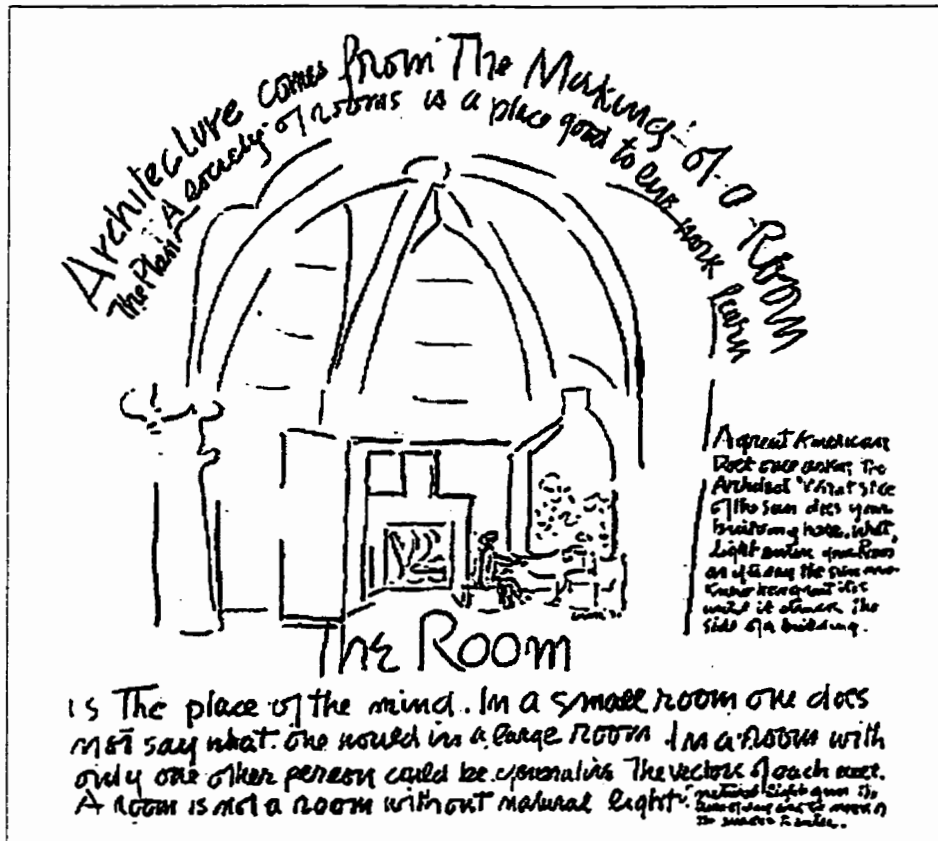 Architecture comes from The Making of a Room
The Plan A society of rooms is a place good to live work learn
A great American
Poet once asked the
Architect What slice
of the sun does your
building have. What
light enters your Room
as if to say the sun never
knew how great it is
until it struck the
side of a building.
The Room
is The place of the mind. In a small room one does
not say what one would in a large room. In a room with
only one other person could be generative The vectors of each meet.
A room is not a room without natural light.
natural light gives the
time of day and the mood of
the seasons to enter.